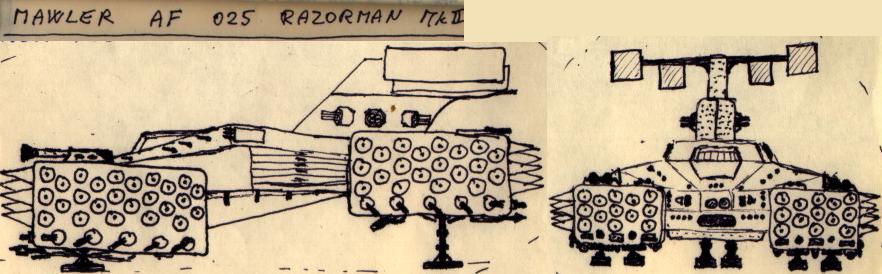 MAWLER AF 025 RAZORMAN MK II